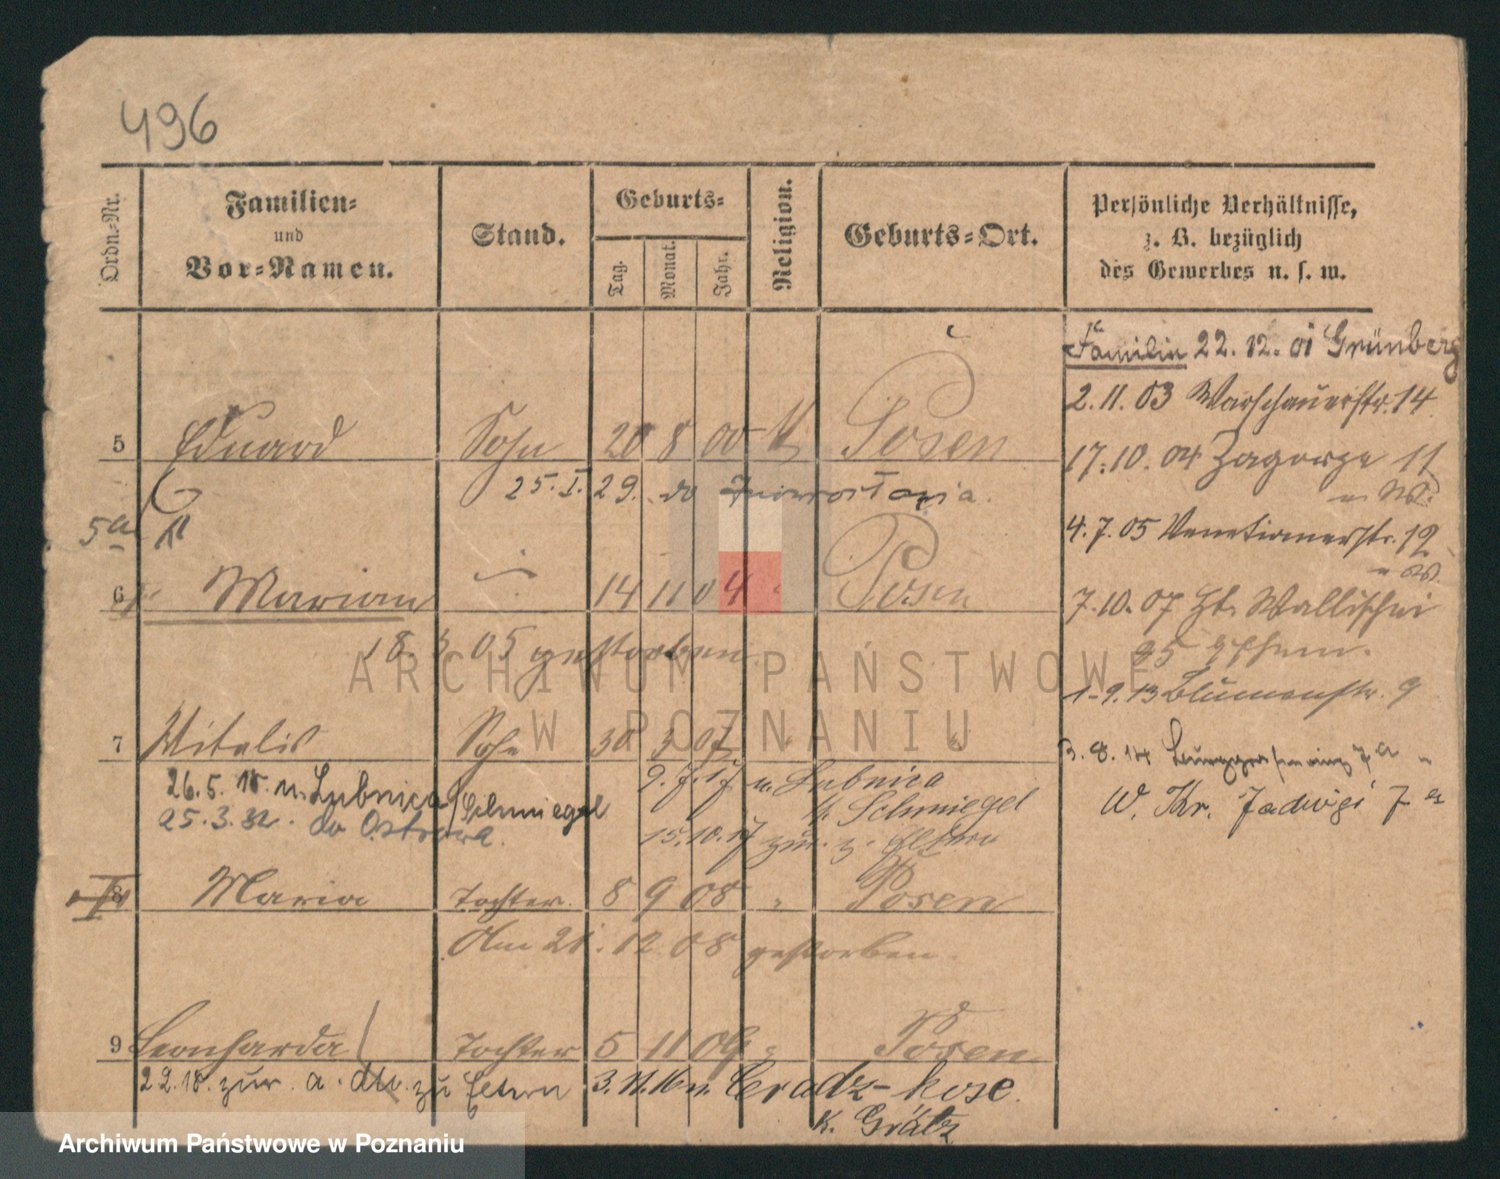 496
Ordn.-Nr.
Familien-
und
Vor-Namen.
Stand.
Geburts-
Tag.
Monat.
Jahr.
Religion.
Geburts-Ort.
Persönliche Verhältnisse,
z. B. bezüglich
des Gewerbes u. s. w.
Familie 22. 12. 01 Grünberg
2. 11. 03 Warschauerstr. 14
5 Eduard Sohn 20 8 00 Posen
17. 10. 04 Zagorze 11
25. I. 29. do
5a
4. 7. 05 Venetianerstr. 12
6 Marian 14 11 04 Posen
7. 10. 07 Wallischei
18. 3. 05 gestorben
95
1. 9. 13 Blumenstr. 9
7 Witalis Sohn 30 3 07 "
3. 8. 14 7a
26. 5. 18. n. Lubnica / Schmiegel
9. 7. 17 n. Lubnica
K. Schmiegel
W. Kr. Jadwigi 7a
25. 3. 32. do Ostrowa.
15. 10. 17 zur. z. Eltern
8 Maria Tochter 8 9 08 " Posen
Am 21. 12 08 gestorben.
9 Leonharda Tochter 5 11 09 Posen
22. 18. zur. a. dto. zu Eltern
3. 11. 16 n.
K. Grätz
ARCHIWUM PAŃSTWOWE
W POZNANIU
Archiwum Państwowe w Poznaniu